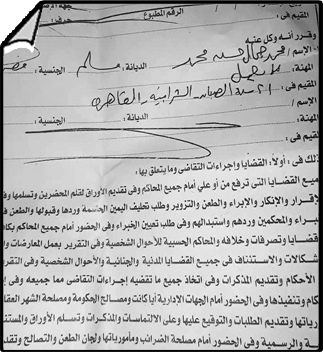 الرقم المطبوع
المقيم فى :
حرف :
وقرر أنه وكل عنه
الإسم / محمد جمال حسن محمد
المهنة : لا يعمل الديانة : مسلم الجنسية :
المقيم فى : ٢١ ش الشرابية - القاهرة
الإسم /
المهنة : الديانة : الجنسية :
المقيم فى :
وذلك فى : أولاً : القضايا وإجراءات التقاضى وما يتعلق بها :
جميع القضايا التى ترفع من أو على أمام جميع المحاكم وفى تقديم الأوراق لقلم المحضرين وتسلمها وفى
الإقرار والإنكار والإبراء والطعن والتزوير وطلب تحليف اليمين الحاسمة وردها وقبولها والطعن
الخبراء والمحكمين وردهم واستبدالهم وفى طلب تعيين الخبراء وفى الحضور أمام جميع المحاكم بكافة
قضايا وتصرفات وخلافه والمحاكم الحسبية للأحوال الشخصية وفى التقرير بعمل المعارضات
شكالات والاستئناف فى جميع القضايا المدنية والجنائية والأحوال الشخصية وفى التقرير
الأحكام وتقديم المذكرات وفى اتخاذ جميع ما تقضيه إجراءات التقاضى مما جميعه وفى إ
كام وتنفيذها وفى الحضور أمام الجهات الإدارية أيا كانت ومصالح الحكومة ومصلحة الشهر العقا
رياتها وتقديم الطلبات والتوقيع عليها وعلى الالتماسات والمذكرات وتسلم الأوراق والمستند
ـة والرسمية وفى الحضور أمام مصلحة الضرائب ومأمورياتها ولجان الطعن والتصالح وتقد